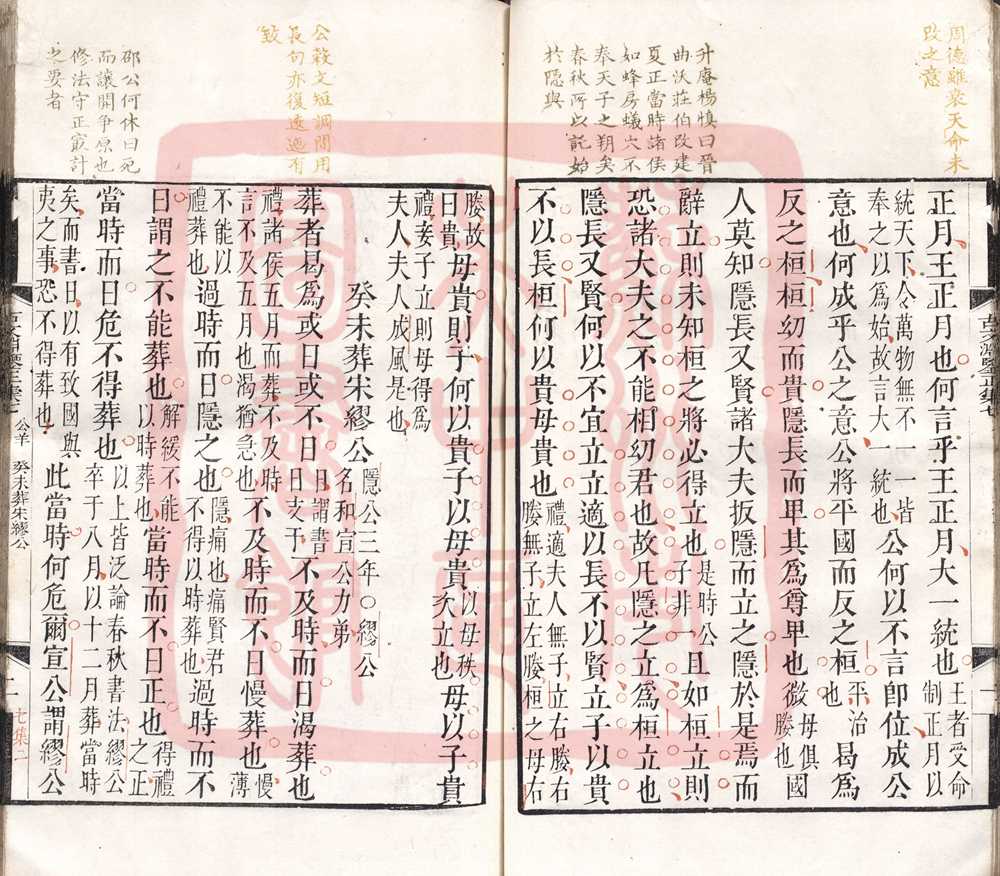 周德雖衰天命未
改之意
升庵楊慎曰晉
曲沃莊伯改建
夏正當時諸侯
如蜂房蟻穴不
奉天子之朔矣
春秋所以託始
於隱與
正月王正月也何言乎王正月大一統也王者受命制正月以
統天下令萬物無不一一皆奉之以為始故言大一統也公何以不言卽位成公
意也何成乎公之意公將平國而反之桓平治也曷為
反之桓桓幼而貴隱長而卑其為尊卑也微母俱媵也國
人莫知隱長又賢諸大夫扳隱而立之隱於是焉而
辭立則未知桓之將必得立也是時公子非一且如桓立則
恐諸大夫之不能相幼君也故凡隱之立為桓立也
隱長又賢何以不宜立立適以長不以賢立子以貴
不以長桓何以貴母貴也禮適夫人無子立右媵右媵無子立左媵桓之母右
媵故曰貴母貴則子何以貴子以母貴以母秩次立也母以子貴
禮妾子立則母得為夫人夫人成風是也
癸未葬宋繆公隱公三年○繆公名和宣公力弟
葬者曷為或日或不日日謂書日支干不及時而日渴葬也
禮諸侯五月而葬不及時言不及五月也渴猶急也不及時而不日慢葬也慢薄
不能以禮葬也過時而日隱之也隱痛也痛賢君不得以時葬也過時而不
日謂之不能葬也解緩不能以時葬也當時而不日正也得禮之正
當時而日危不得葬也以上皆泛論春秋書法繆公卒于八月以十二月葬當時
矣而書日以有致國與夷之事恐不得葬也此當時何危爾宣公謂繆公
公羊 癸未葬宋繆公
七集二
公穀文短調閒用
長句亦復逸𨓜有
致
邵公何休曰死
而讓開爭原也
修法守正㝡計
之要者